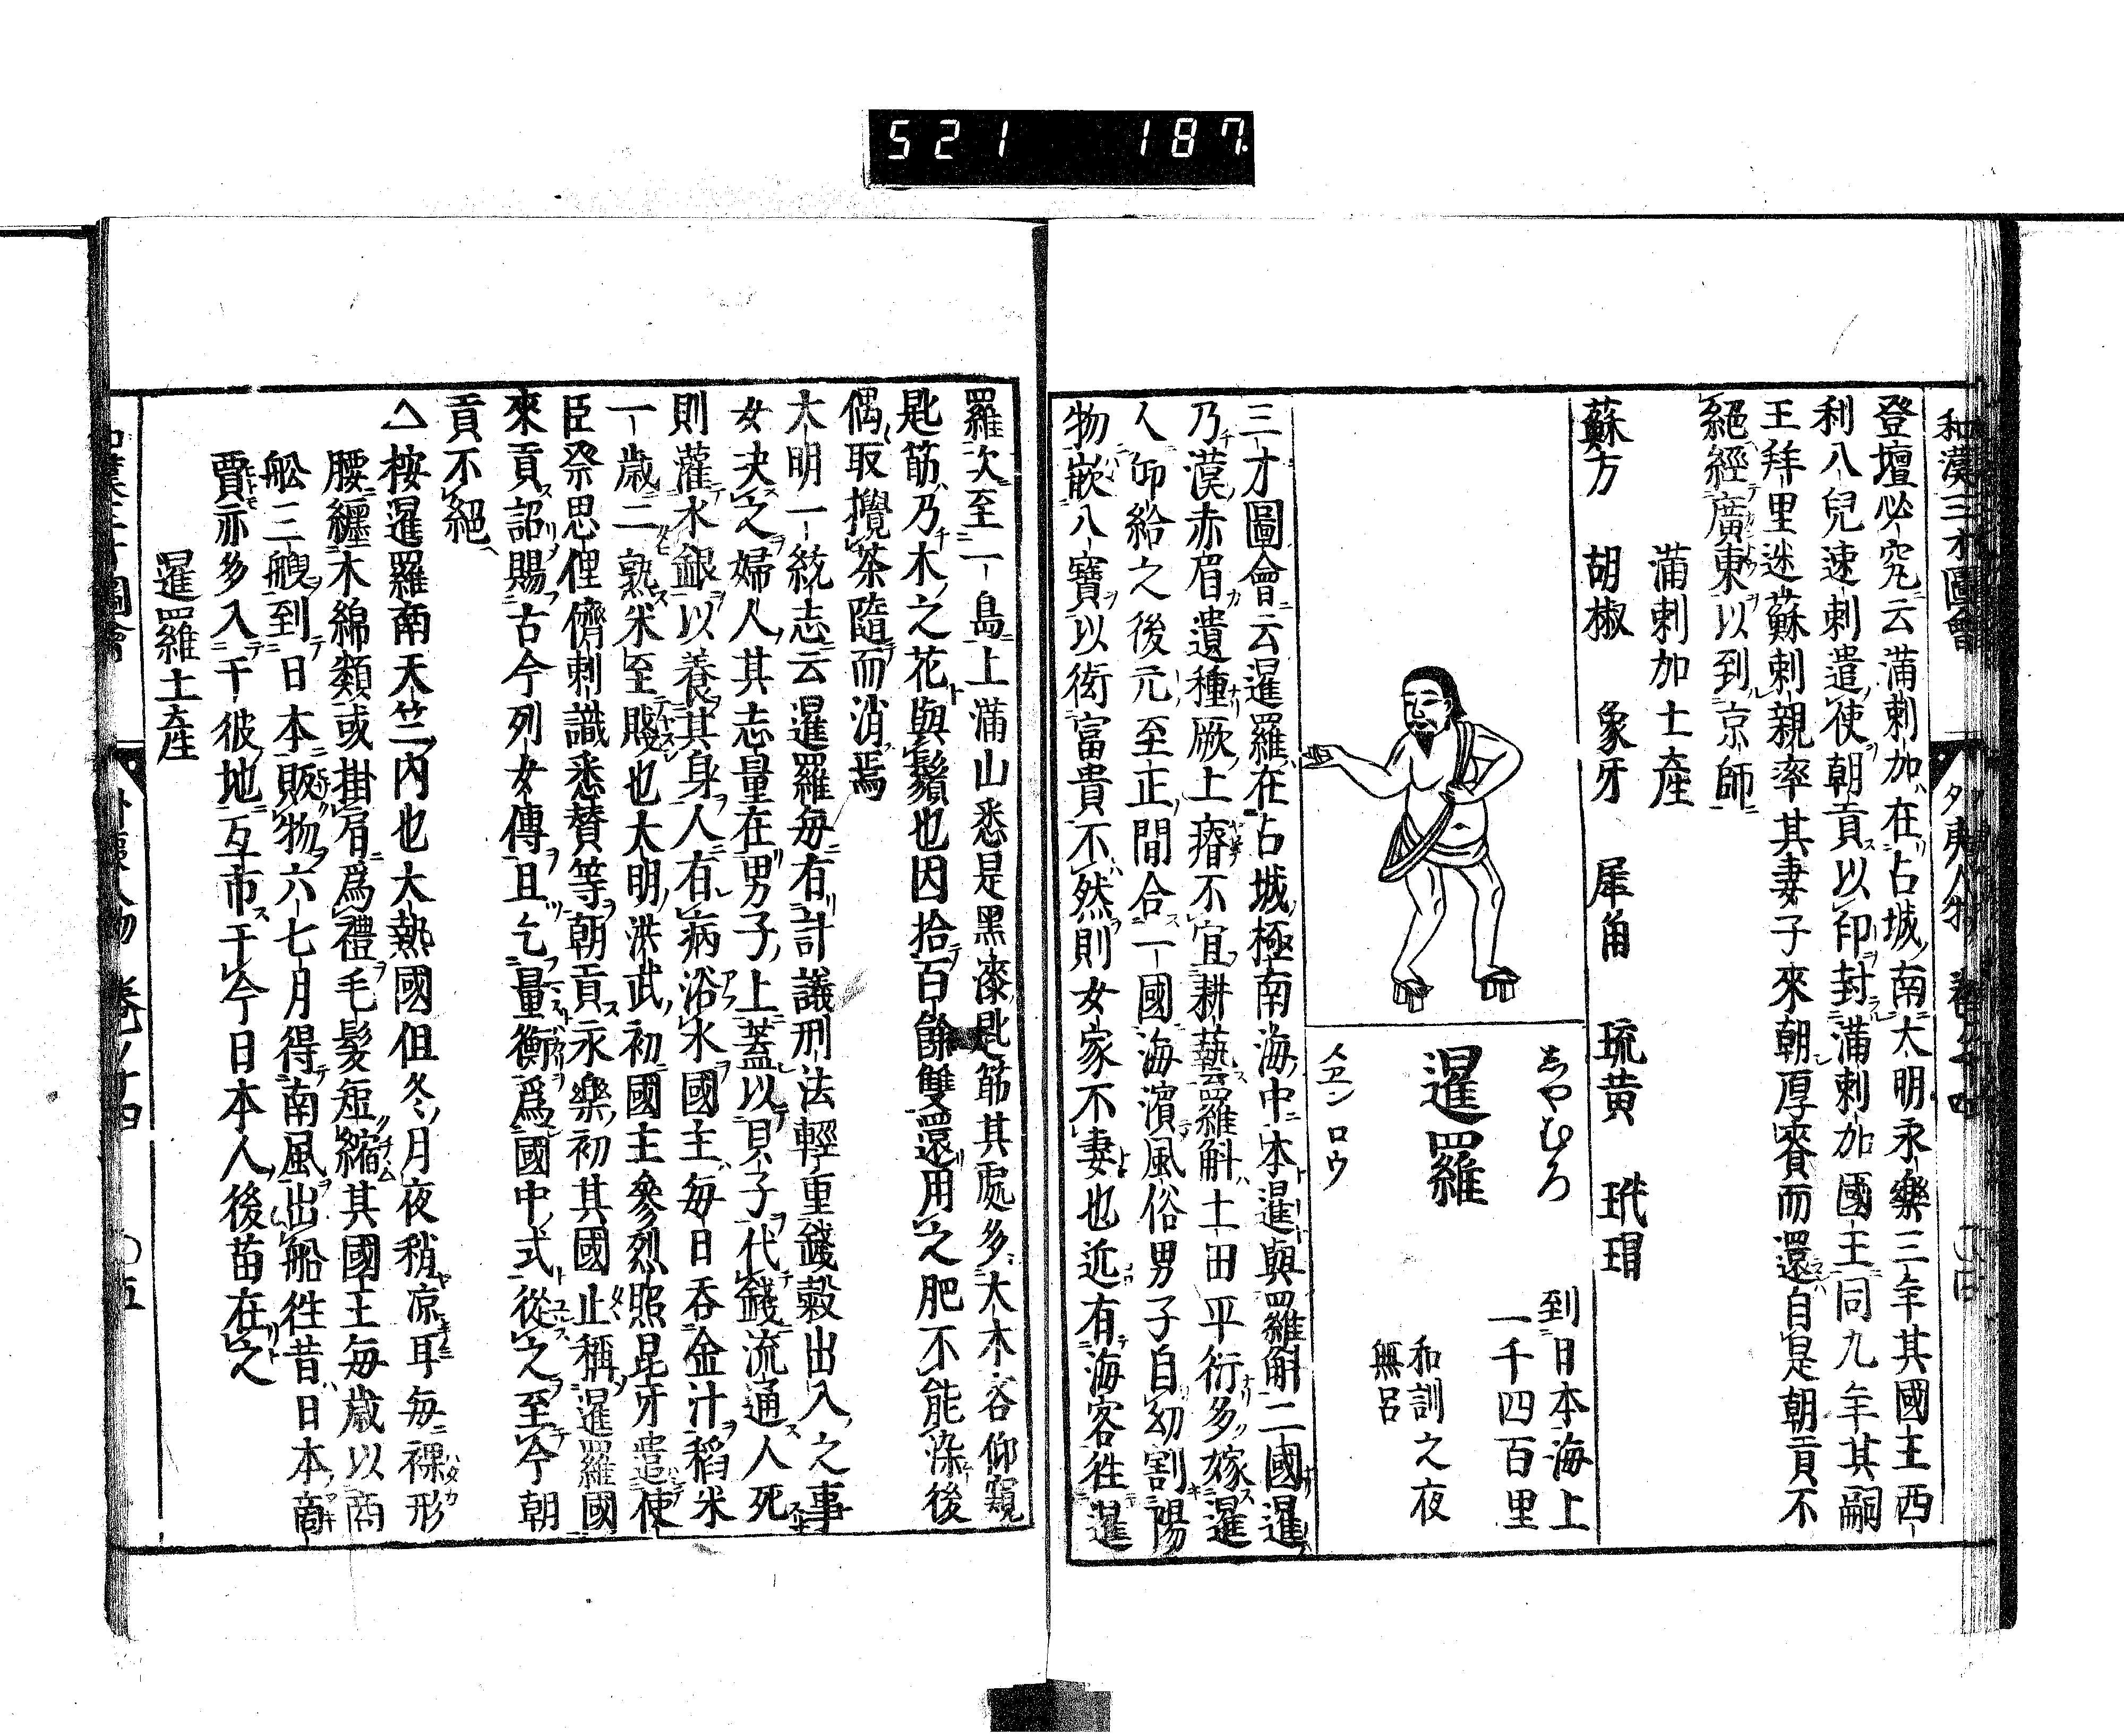 521 187
和漢三才圖會 外夷人物 卷第十四
登壇必究云滿剌加在占城南大明永樂三年其國王西
利八兒速剌遣使朝貢以印封滿剌加國王同九年其嗣
王拜里迷蘇剌親率其妻子來朝厚賚而還自是朝貢不
絕經廣東以到京師
滿剌加土產
蘇方 胡椒 象牙 犀角 琉黃 玳瑁
しやむろ
暹羅
スエンロウ
到日本海上
一千四百里
和訓之夜
無呂
三才圖會云暹羅在占城極南海中本暹與羅斛二國暹
乃漢赤眉遺種厥土瘠不宜耕藝羅斛土田平衍多嫁暹
人仰給之後元至正間合一國海濱風俗男子自幼割陽
物嵌八寶以衒富貴不然則女家不妻也近有海客徃暹
羅次至一島上滿山悉是黑漆匙筯其處多大木客仰窺
匙筯乃木之花與鬚也因拾百餘雙還用之肥不能染後
偶取攪茶隨而消焉
大明一統志云暹羅每有計議刑法輕重錢穀出入之事
女決之婦人其志量在男子上蓋以貝子代錢流通人死
則灌水銀以養其身人有病浴水國主每日吞金汁稻米
一歲二熟米至賤也大明洪武初國主參烈照昆牙遣使
臣祭思俚儕剌識悉替等朝貢永樂初其國止稱暹羅國
來貢詔賜古今列女傳且乞量衡爲國中式從之至今朝
貢不絕
△按暹羅南天竺內也大熱國但冬月夜稍凉耳每裸形
腰纒木綿類或掛肩爲禮毛髮短縮其國王每歲以商
舩三艘到日本販物六七月得南風出船徃昔日本商
賈亦多入于彼地互市于今日本人後苗在之
暹羅土產
和漢三才圖會 外夷人物 卷ノ十四 〇五